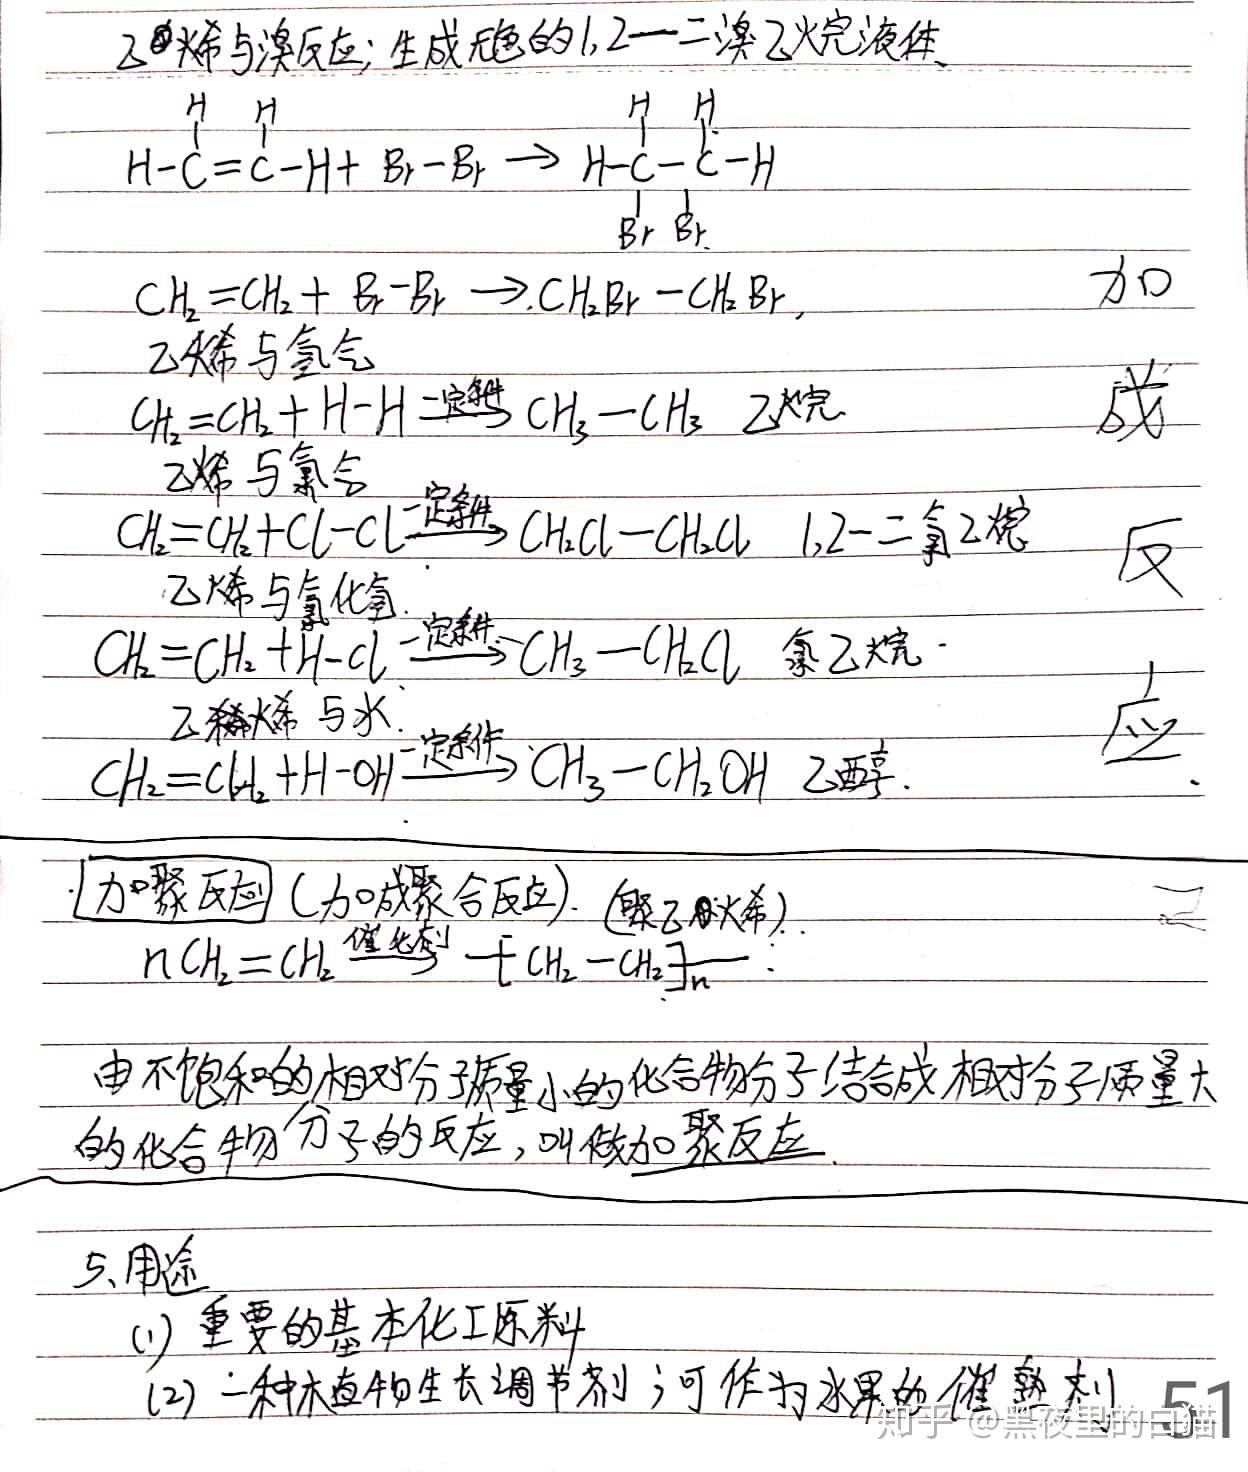 乙烯与溴反应;生成无色的1,2一二溴乙烷液体、
H H
H-C=C-H+ Br-Br → H-C-C-H
H H
Br Br.
CH₂=CH₂+ Br-Br →.CH₂Br-CH₂Br,
加
乙烯与氢气
CH₂=CH₂+H-H 一定条件→ CH₃-CH₃ 乙烷
成
乙烯与氯气
CH₂=CH₂+Cl-Cl 一定条件→ CH₂Cl-CH₂Cl 1,2-二氯乙烷
反
乙烯与氯化氢.
CH₂=CH₂+H-Cl 一定条件→ CH₃-CH₂Cl 氯乙烷
乙烯与水.
应
CH₂=CH₂+H-OH 一定条件→ CH₃-CH₂OH 乙醇.
加聚反应(加成聚合反应).(聚乙烯).
nCH₂=CH₂ 催化剂→ -[CH₂-CH₂]-n
由不饱和的相对分子质量小的化合物分子结合成相对分子质量大
的化合物分子的反应,叫做加聚反应.
5、用途
(1)重要的基本化工原料
(2)一种植物生长调节剂;可作为水果的催熟剂
51
知乎 @黑夜里的白猫